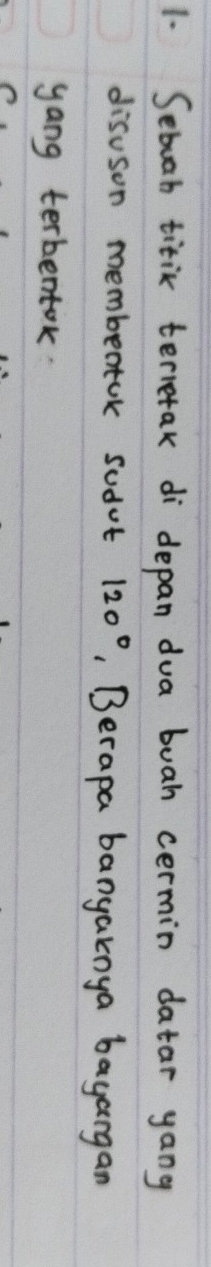 1. Sebuah titik terletak di depan dua buah cermin datar yang
disusun membentuk sudut 120°, Berapa banyaknya bayangan
yang terbentuk.